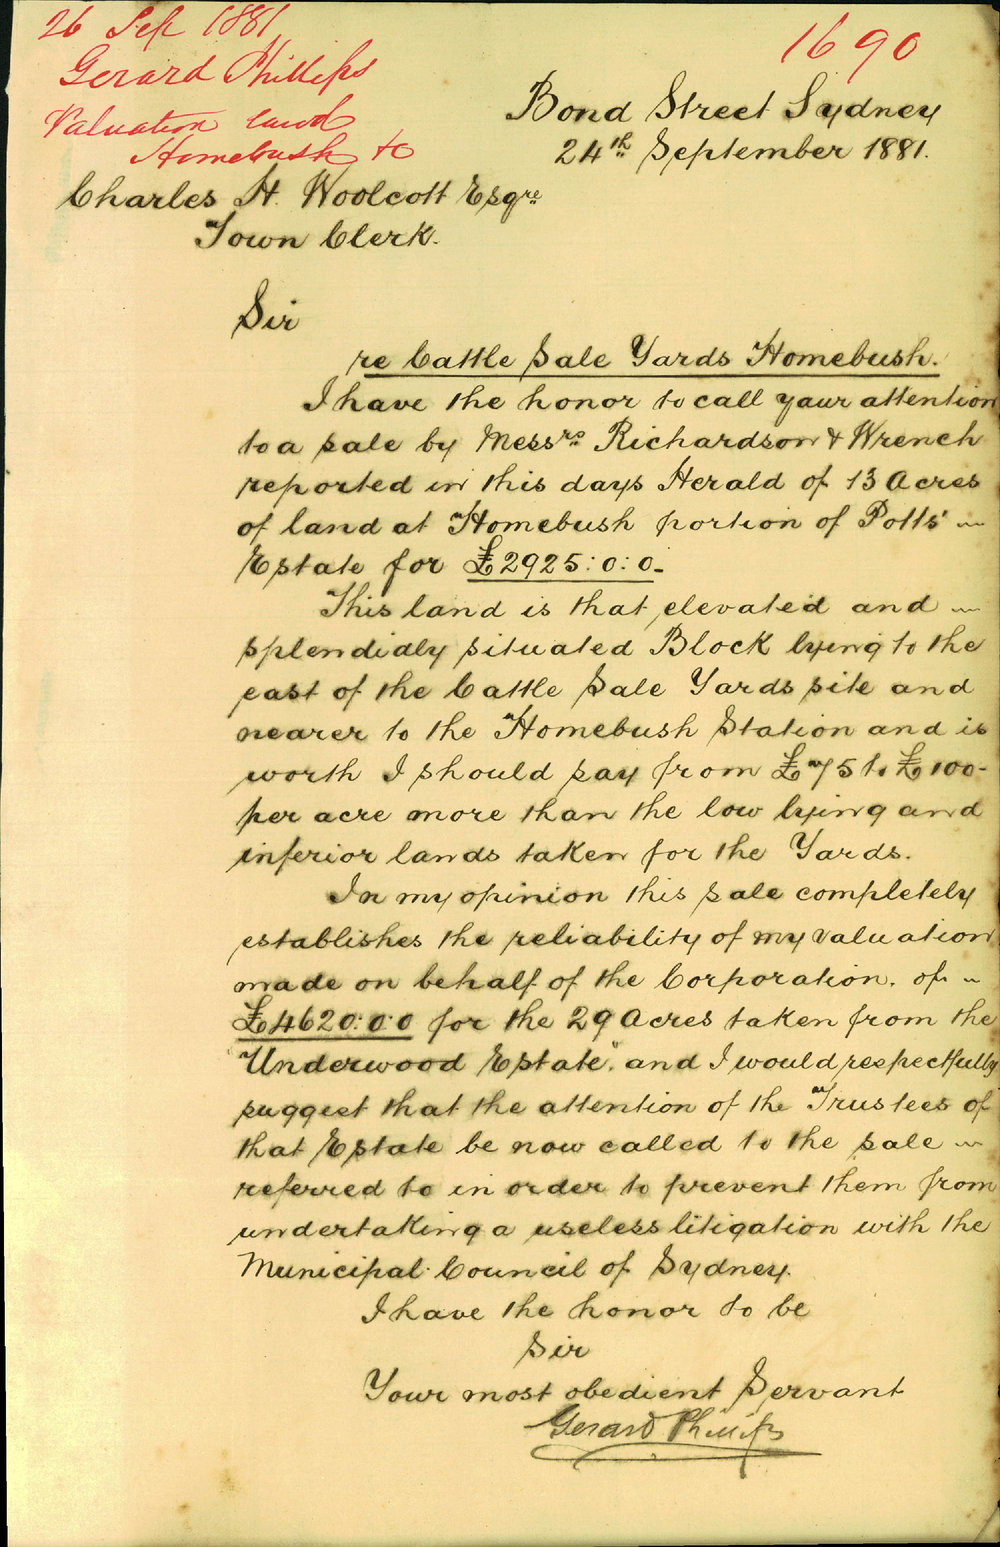 26 Sep 1881
Gerard Phillips
Valuation land
Homebush to
1690
Bond Street Sydney
24th September 1881.
Charles H. Woolcott Esqre
Town Clerk.
Sir
re Cattle Sale Yards Homebush.
I have the honor to call your attention
to a sale by Messrs Richardson & Wrench
reported in this days Herald of 13 Acres
of land at Homebush portion of Potts'
Estate for £2925:0:0
This land is that elevated and
splendidly situated Block lying to the
east of the Cattle Sale Yards site and
nearer to the Homebush Station and is
worth I should say from £75 to £100-
per acre more than the low lying and
inferior lands taken for the Yards.
In my opinion this sale completely
establishes the reliability of my valuation
made on behalf of the Corporation. of
£4620:0:0 for the 29 Acres taken from the
"Underwood Estate", and I would respectfully
suggest that the attention of the Trustees of
that Estate be now called to the sale
referred to in order to prevent them from
undertaking a useless litigation with the
Municipal Council of Sydney.
I have the honor to be
Sir
Your most obedient Servant
Gerard Phillips